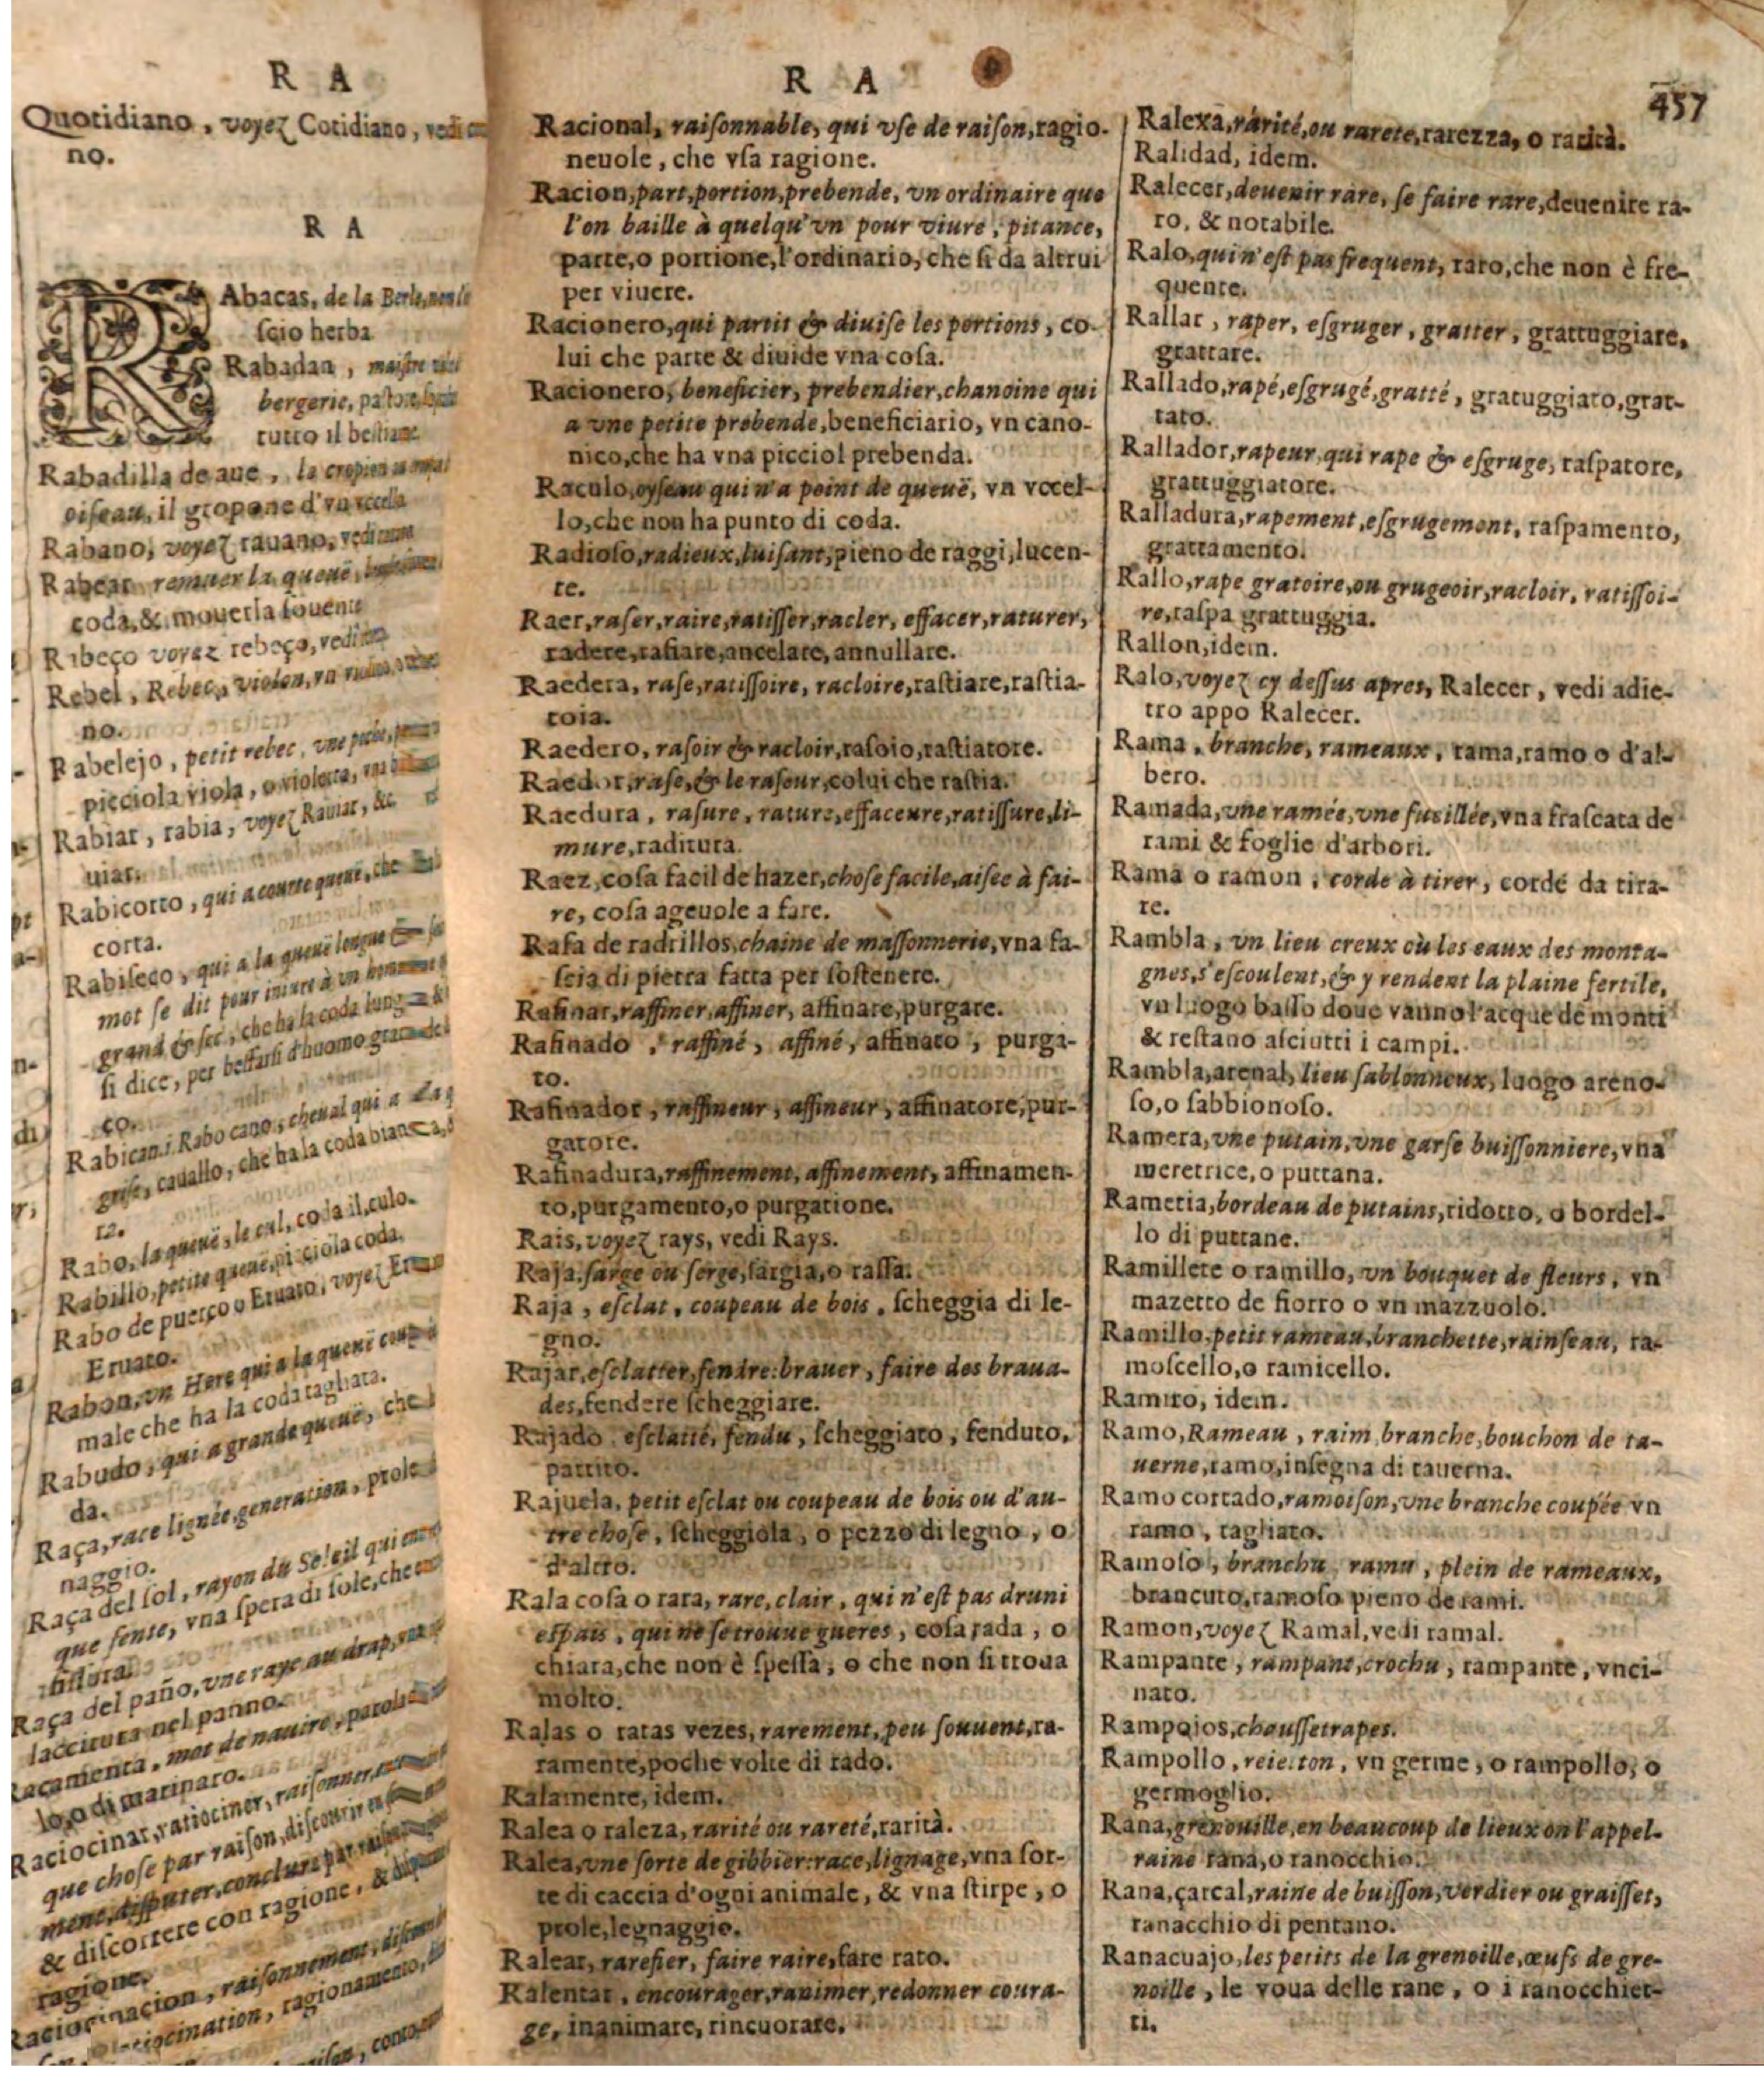 R A
Quotidiano, voyez Cotidiano, vedi
no.
R A
RAbacas, de la Berle,
ſcio herba
Rabadan, maiſtre
bergerie, paſtore
tutto il beſtiame
Rabadilla de aue, la cropion
oiſeau, il gropone d'vn vccello
Rabano, voyez rauano, vedi rauano
Rabear remuer la queuë,
coda, & mouerla ſouente
Ribeço voyez rebeço, vedi
Rebel, Rebec, violon, vn
no.
Rabelejo, petit rebec, vne petite
picciola viola, o violetta,
Rabiar, rabia, voyez Rauiar, &c.
uiar.
Rabicorto, qui a courte queuë, che
corta.
Rabiſeco, qui a la queuë longue &
mot ſe dit pour iniure à vn homme
grand & ſec, che ha la coda lunga &
ſi dice, per beffarſi d'huomo grande
co.
Rabicano.i. Rabo cano, cheual qui a la q
griſe, cauallo, che ha la coda bianca, o
ta.
Rabo, la queuë, le cul, coda il, culo.
Rabillo, petite queuë, picciola coda.
Rabo de puerço o Eruato, voyez
Eruato.
Rabon, vn Here qui a la queuë
male che ha la coda tagliata.
Rabudo, qui a grande queuë, che
da.
Raça, race lignée, generation, prole
naggio.
Raça del ſol, rayon du Soleil qui
que fente, vna ſpera di ſole, che
fiſſura.
Raça del paño, vne raye au drap,
laccitura nel panno.
Racamenta, mot de nauire, parola
lo, o di marinaro.
Raciocinar, ratiociner, raiſonner,
que choſe par raiſon, diſcourir
ment, diſputer, conclure par
& diſcorrere con ragione, &
ragione.
Raciocinacion, raiſonnement,
ragionamento,
R A
457
Racional, raiſonnable, qui vſe de raiſon, ragio-
neuole, che vſa ragione.
Racion, part, portion, prebende, vn ordinaire que
l'on baille à quelqu'vn pour viure, pitance,
parte, o portione, l'ordinario, che ſi da altrui
per viuere.
Racionero, qui partit & diuiſe les portions, co-
lui che parte & diuide vna coſa.
Racionero, beneficier, prebendier, chanoine qui
a vne petite prebende, beneficiario, vn cano-
nico, che ha vna picciol prebenda.
Raculo, oyſeau qui n'a point de queuë, vn vccel-
lo, che non ha punto di coda.
Radioſo, radieux, luiſant, pieno de raggi, lucen-
te.
Raer, raſer, raire, ratiſſer, racler, effacer, raturer,
radere, raſiare, ancelare, annullare.
Raedera, raſe, ratiſſoire, racloire, raſtiare, raſtia-
toia.
Raedero, raſoir & racloir, raſoio, raſtiatore.
Raedor, raſe, & le raſeur, colui che raſtia.
Raedura, raſure, rature, effaceure, ratiſſure, li-
mure, raditura.
Raez, coſa facil de hazer, choſe facile, aiſee à fai-
re, coſa ageuole a fare.
Rafa de radrillos, chaine de maſſonnerie, vna fa-
ſcia di pietra fatta per ſoſtenere.
Rafinar, raffiner, affiner, affinare, purgare.
Rafinado, raffiné, affiné, affinato, purga-
to.
Rafinador, raffineur, affineur, affinatore, pur-
gatore.
Rafinadura, raffinement, affinement, affinamen-
to, purgamento, o purgatione.
Rais, voyez rays, vedi Rays.
Raja, ſarge ou ſerge, ſargia, o raſſa.
Raja, eſclat, coupeau de bois, ſcheggia di le-
gno.
Rajar, eſclatter, fendre: brauer, faire des braua-
des, fendere ſcheggiare.
Rajado eſclatté, fendu, ſcheggiato, fenduto,
partito.
Rajuela, petit eſclat ou coupeau de bois ou d'au-
tre choſe, ſcheggiola, o pezzo di legno, o
d'altro.
Rala coſa o rara, rare, clair, qui n'eſt pas druni
eſpais, qui ne ſe trouue gueres, coſa rada, o
chiara, che non è ſpeſſa, o che non ſi troua
molto.
Ralas o raras vezes, rarement, peu ſouuent, ra-
ramente, poche volte di rado.
Ralamente, idem.
Ralea o raleza, rarité ou rareté, rarità.
Ralea, vne ſorte de gibbier: race, lignage, vna ſor-
te di caccia d'ogni animale, & vna ſtirpe, o
prole, legnaggio.
Ralear, rarefier, faire raire, fare raro.
Ralentar, encourager, ranimer, redonner coura-
ge, inanimare, rincuorare.
Ralexa, rárité, ou rareté, rarezza, o radità.
Ralidad, idem.
Ralecer, deuenir rare, ſe faire rare, deuenire ra-
ro, & notabile.
Ralo, qui n'eſt pas frequent, raro, che non è fre-
quente.
Rallar, raper, eſgruger, gratter, grattuggiare,
grattare.
Rallado, rapé, eſgrugé, gratté, gratuggiato, grat-
tato.
Rallador, rapeur, qui rape & eſgruge, raſpatore,
grattuggiatore.
Ralladura, rapement, eſgrugement, raſpamento,
grattamento.
Rallo, rape gratoire, ou grugeoir, racloir, ratiſſoi-
re, raſpa grattuggia.
Rallon, idem.
Ralo, voyez cy deſſus apres, Ralecer, vedi adie-
tro appo Ralecer.
Rama, branche, rameaux, rama, ramo o d'al-
bero.
Ramada, vne ramée, vne fueillée, vna fraſcata de
rami & foglie d'arbori.
Rama o ramon, corde à tirer, corde da tira-
re.
Rambla, vn lieu creux où les eaux des monta-
gnes, s'eſcoulent, & y rendent la plaine fertile,
vn luogo baſſo doue vanno l'acque de monti
& reſtano aſciutti i campi.
Rambla, arenal, lieu ſablonneux, luogo areno-
ſo, o ſabbionoſo.
Ramera, vne putain, vne garſe buiſſonniere, vna
meretrice, o puttana.
Rameria, bordeau de putains, ridotto, o bordel-
lo di puttane.
Ramillete o ramillo, vn bouquet de fleurs, vn
mazetto de fiorro o vn mazzuolo.
Ramillo, petit rameau, branchette, rainſeau, ra-
moſcello, o ramicello.
Ramito, idem.
Ramo, Rameau, raim, branche, bouchon de ta-
uerne, ramo, inſegna di tauerna.
Ramo cortado, ramoiſon, vne branche coupée vn
ramo, tagliato.
Ramoſo, branchu, ramu, plein de rameaux,
brancuto, ramoſo pieno de rami.
Ramon, voyez Ramal, vedi ramal.
Rampante, rampant, crochu, rampante, vnci-
nato.
Rampojos, chauſſetrapes.
Rampollo, reietton, vn germe, o rampollo, o
germoglio.
Rana, grenouille, en beaucoup de lieux on l'appel-
raine rana, o ranocchio.
Rana, çarcal, raine de buiſſon, verdier ou graiſſet,
ranacchio di pentano.
Ranacuajo, les petits de la grenoille, œufs de gre-
noille, le voua delle rane, o i ranocchiet-
ti.